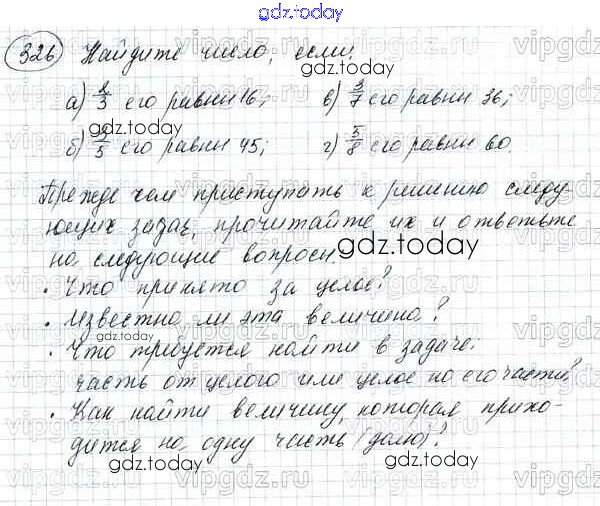 gdz.today
326 Найдите число, если:
gdz.today
а) 2/3 его равны 16; в) 3/7 его равны 36;
gdz.today
б) 3/5 его равны 45; г) 5/8 его равны 60.
Прежде чем приступать к решению следу-
ющих задач, прочитайте их и ответьте
на следующие вопросы.
gdz.today
• Что принято за целое?
• Известна ли эта величина?
• Что требуется найти в задаче:
часть от целого или целое по его части?
• Как найти величину, которая прихо-
дится на одну часть (долю)?
gdz.today gdz.today